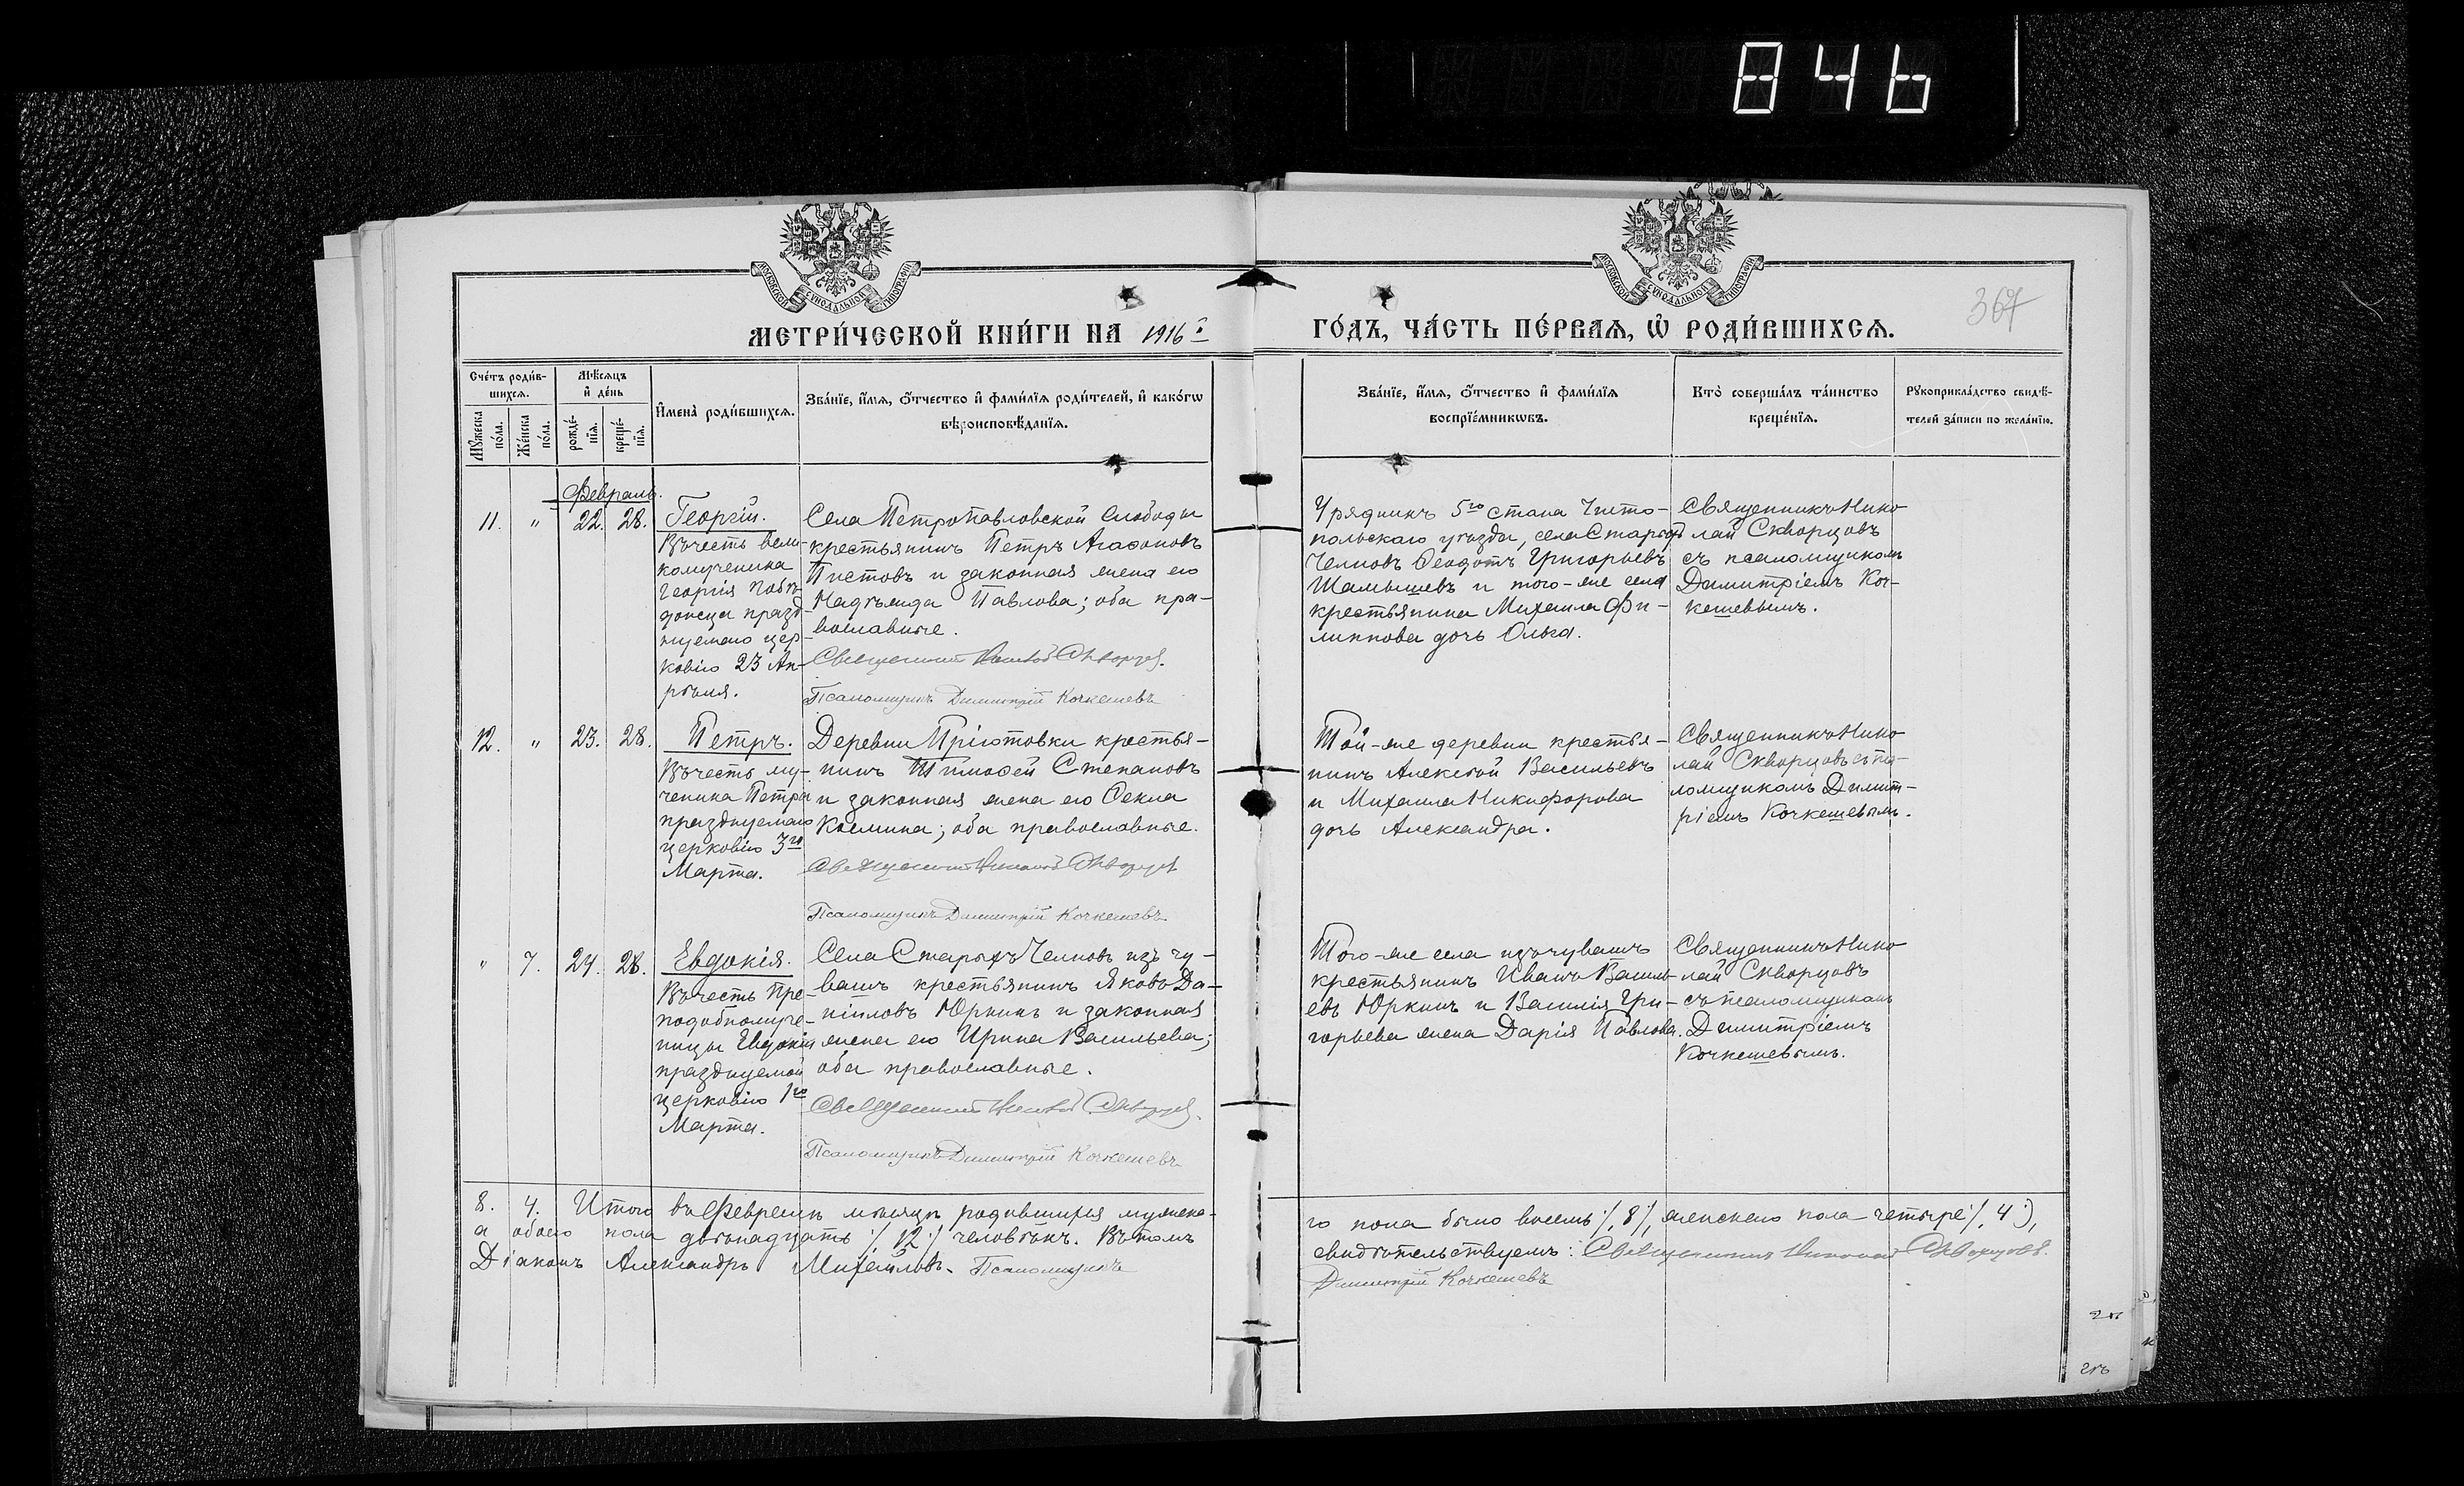 846
МОСКОВСКОЙ СѴНОДАЛЬНОЙ ТИПОГРАФІИ
МОСКОВСКОЙ СѴНОДАЛЬНОЙ ТИПОГРАФІИ
367
МЕТРИ́ЧЕСКОЙ КНИ́ГИ НА 1916 й
ГО́ДЪ, ЧА́СТЬ ПЕ́РВАѦ, Ѡ҆ РОДИ́ВШИХСѦ.
Сче́тъ роди́в-
шихсѧ.
Мꙋ́жеска по́ла.
Же́нска по́ла.
Мѣ́сѧцъ
и҆ де́нь
рожде́-
нїѧ.
креще́-
нїѧ.
И҆мена̀ роди́вшихсѧ.
Зва́нїе, и҆́мѧ, ѻ҆́тчество и҆ фами́лїѧ роди́телей, и҆ како́гѡ
вѣроисповѣ́данїѧ.
Зва́нїе, и҆́мѧ, ѻ҆́тчество и҆ фами́лїѧ
воспрїе́мникѡвъ.
Кто̀ соверша́лъ та́инство
креще́нїѧ.
Рꙋкоприкла́дство свидѣ́-
телей за́писи по жела́нїю.
Февраль.
11. " 22. 28. Георгій.
Въ честь вели-
комученика
Георгія Побѣ-
доносца празд-
нуемаго цер-
ковію 23 Ап-
рѣля.
Села Петропавловской Слободы
крестьянинъ Петръ Агаѳоновъ
Пистовъ и законная жена его
Надѣжда Павлова; оба пра-
вославные.
Священникъ Николай Скворцовъ.
Псаломщикъ Димитрій Кочкешевъ
Урядникъ 5го стана Чисто-
польскаго уѣзда, села Старыхъ
Челновъ Ѳеодотъ Григорьевъ
Шамышевъ и того-же села
крестьянина Михаила Фи-
липпова дочь Ольга.
Священникъ Нико-
лай Скворцовъ
съ псаломщикомъ
Димитріемъ Коч-
кешевымъ.
12. " 23. 28. Петръ.
Въ честь му-
ченика Петра
празднуемаго
церковію 3го
Марта.
Деревни Пріютовки крестья-
нинъ Тимоѳей Степановъ
и законная жена его Ѳекла
Космина; оба православные.
Священникъ Николай Скворцовъ
Псаломщикъ Димитрій Кочкешевъ
Той-же деревни крестья-
нинъ Алексѣй Васильевъ
и Михаила Никифорова
дочь Александра.
Священникъ Нико-
лай Скворцовъ съ пса-
ломщикомъ Димит-
ріемъ Кочкешевымъ.
" 7. 24. 28. Евдокія.
Въ честь Пре-
подобномуче-
ницы Евдокіи
празднуемой
церковію 1го
Марта.
Села Старыхъ Челновъ изъ чу-
вашъ крестьянинъ Яковъ Да-
ніиловъ Юркинъ и законная
жена его Ирина Васильева;
оба православные.
Священникъ Николай Скворцовъ.
Псаломщикъ Димитрій Кочкешевъ
Того-же села изъ чувашъ
крестьянинъ Иванъ Василь-
евъ Юркинъ и Василія Гри-
горьева жена Дарія Павлова.
Священникъ Нико-
лай Скворцовъ
съ псаломщикомъ
Димитріемъ
Кочкешевымъ.
8. 4. Итого въ Февралѣ мѣсяцѣ родившихся мужска-
го пола было восемь /,8/, женскаго пола - четыре /,4:),
а обоего пола двѣнадцать ./.12./. человѣкъ. Въ томъ
свидѣтельствуемъ: Священникъ Николай Скворцовъ.
Діаконъ Александръ Михайловъ. Псаломщикъ
Димитрій Кочкешевъ